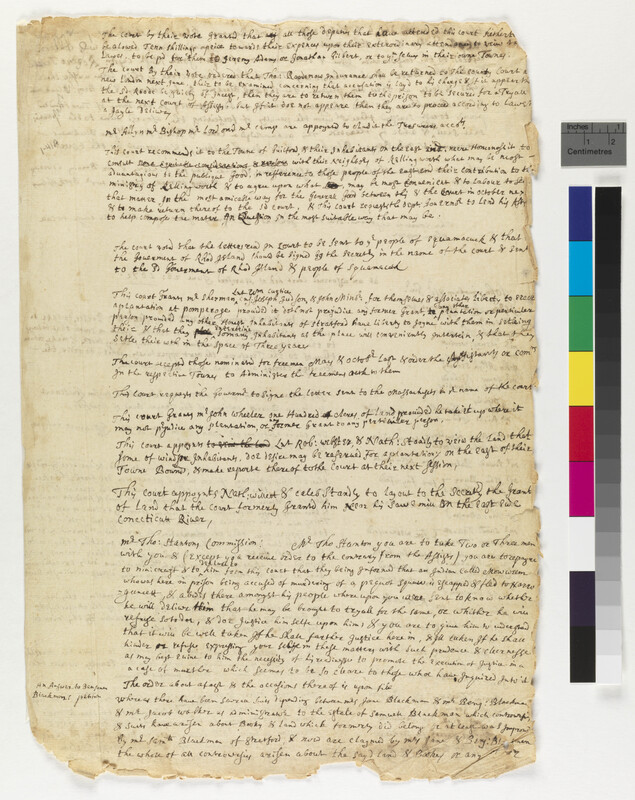 The Court by their Vote granted that all those deputies that have attended this court
be alowed Tenn shillings apiece towards their Expences upon their extraord
to be pd for them to Jeremy Adams or Jonathan Gilbert, or to in their own Townes
The Court by their Vote ordered that Tho: Rood be returned to the County Court at
new London next June there to be examined concerning that accusation yt is layd to his charge & if it appeare
the sd Roode is guilty of Incest, then they are to return them to the prison to be secured for a tryall
at the next Court of Assists: but if it doe not appeare then they are to proceed according to Law
a Jayle Delivery
mr Allyn mr Bishop mr Lord and mr are appoynted to Audit the Treasurers accots
This Court recommends it to the Towne of Guilford & their Inhabitants on the east Homonoscit to
consult with their Neighbors of Killingworth what may be most
advantagious to the publique good. in refference to those people of the eastend their Contribution to the
ministry of Killingworth & to agree upon what may be most Convenient & to labour to Issue
that matter in the most amicable way for the Generall good between this & the Court in October next
& to make return thereof to the sd Court. & this Court requests the to Lend his Ass
to help compose the matter in Question in the most suitable way that may be.
The court voted that the letter read in Court to be sent to ye people of Squamacuck & that
the Goverment of Rhod Island should be signed by the Secrety in the name of the court & sent
to the sd Goverment of Rhod Island & people of Squamacuck
Lnt Wm Curtice
This court Grants mr Sherman, Joseph Judson, & John Minor for themselves & associates liberty to erect
a plantation at pomperoage provided it doth not prejudice any former grant to plantation or perticuler
person provided any other Honest Inhabitants of Stratford have liberty to Joyne with them in setling
there & that they Entertain so many Inhabitants as the place will conveniently entertain, & that they
settle there with in the space of Three years
The court accepts those nominated for freemen May & octobr last & order the
In the respective Townes to Administer the freemans oath to them
This court requests the Govrnor to signe the letter sent to the Massachusets in ye name of the court
This court Grants mr John wheeler one Hundred Acres of Land provided he take it up where it
may not prejudice any plantation or former Grant to any perticuler person.
This court appoynts Lnt Rob: webster, & Nath: Standly to veiw the Land that
some of windsor Inhabitants, doe desire may be reserved for a plantation on the east of their
Towne Bounds, & make reporte thereof to the Court at their next session
This court appoynts Nath: willett & Caleb Standly to layout to the Secrety the Grant
of Land that the Court formerly Granted him near his Saw mill on the East side
Conecticut River,
mr Tho: Stantons Commission: Mr Tho: Stanton you are to take Two or Three men
with you & (Except you receive order to the contrary from the Assists) you are to repayre
to ninicraft & to declare to him from this court that they being Informed that an Indian called
who was here in prison being accused of murdering of a Squaw is escapped & fled to
& abides there amongst his people where upon you were sent to know whether
he will deliver Him that he may be brought to tryall for the same, or whither he will
refuse so to doe, & doe Justice him selfe upon him; & you are to give him to understand
that it will be well taken If he shall farther Justice here in, & Ill taken if he shall
hinder or refuse expressing your selfe in these matters with such prudence & cleernesse
as may best evince to him the necessity of his rediness to promote the execution of Justice in a
case of murther which seemes to be so cleare to those who have Inquired into it.
The order about a fast & the occasions thereof is upon file
an Answer to Benjamin
Blackmans petition
whereas there have been severall Suits depending between mrs Jane Blackman & mr Benj: Blackman
& mr Jacob walker as administrator to the estate of Samuell Blackman which controversies
& suits have arisen about Books & land which formerly did belong to & was Improved
by mr Blackman of Stratford & now are claymed by mrs Jane & Benj:
the whole of all controversies arisen about the sayd land & Bookes or any